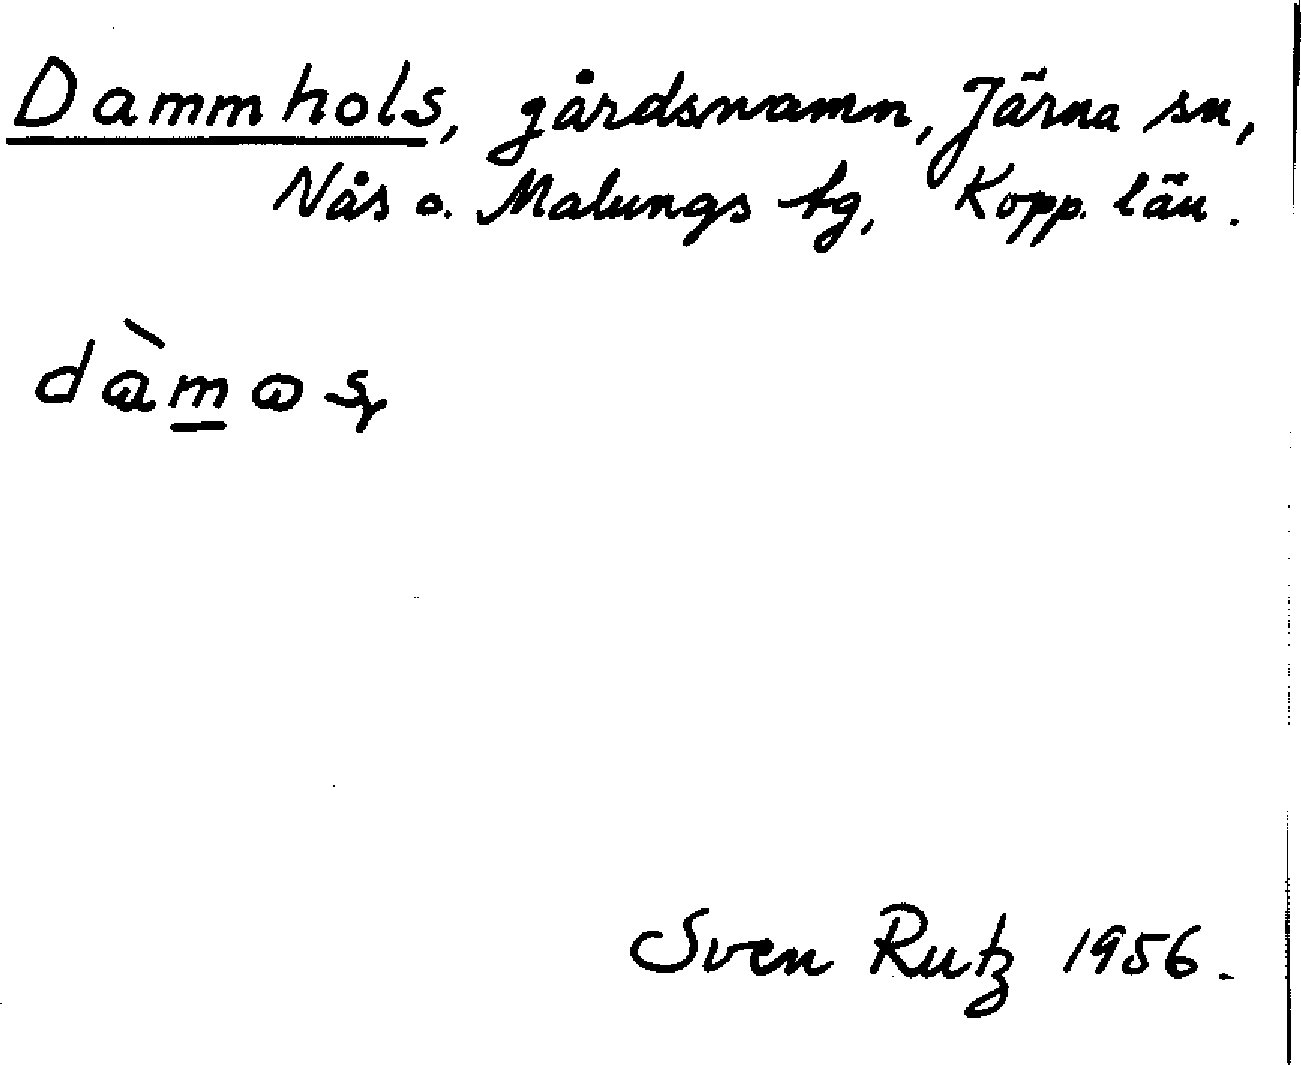 Dammhols, gårdsnamn, Järna sn,
Nås o. Malungs tg, Kopp. län.
dàmos
Sven Rutz 1956.